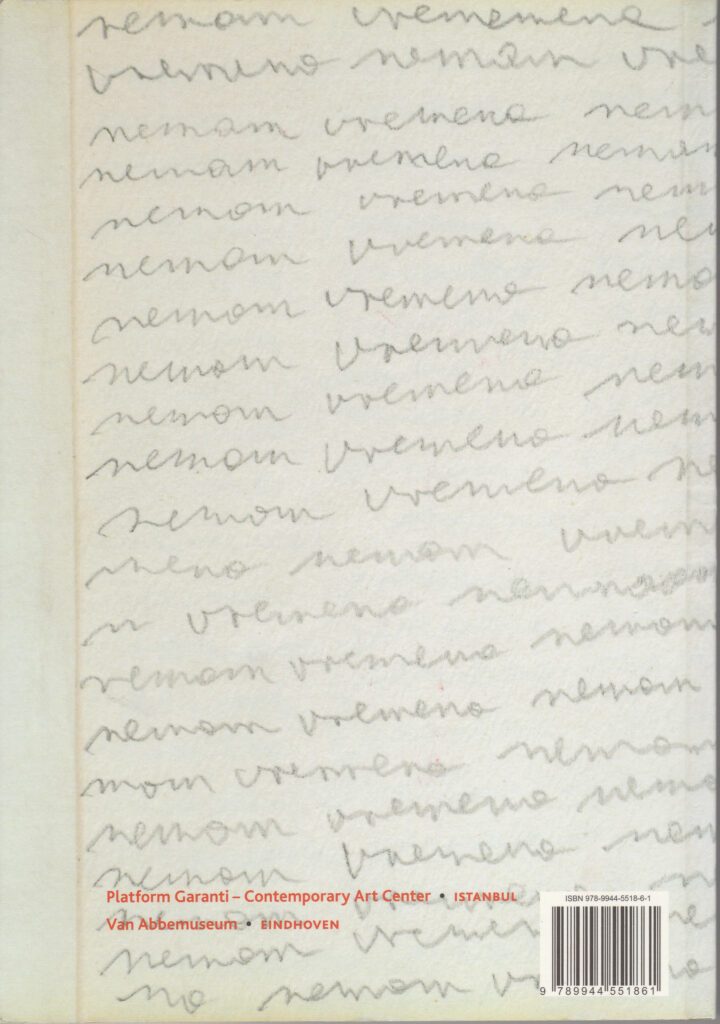 nemam vrememena
vremena nemam vre
nemam vremena nem
nemam vremena nemam
nemam vremena nem
nemam vremena ne
nemam vremena nema
nemam vremena nem
nemam vremena nem
nemam vremena nem
nemam vremena ne
mena nemam vrem
m vremena
nemam vremena nemam
nemam vremena nemam
mam vremena nemam
nemam vremena nema
nemam vremena nem
nemam
Platform Garanti – Contemporary Art Center • ISTANBUL
nemam
Van Abbemuseum • EINDHOVEN
nemam
na nemam
ISBN 978-9944-5518-6-1
9 789944 551861